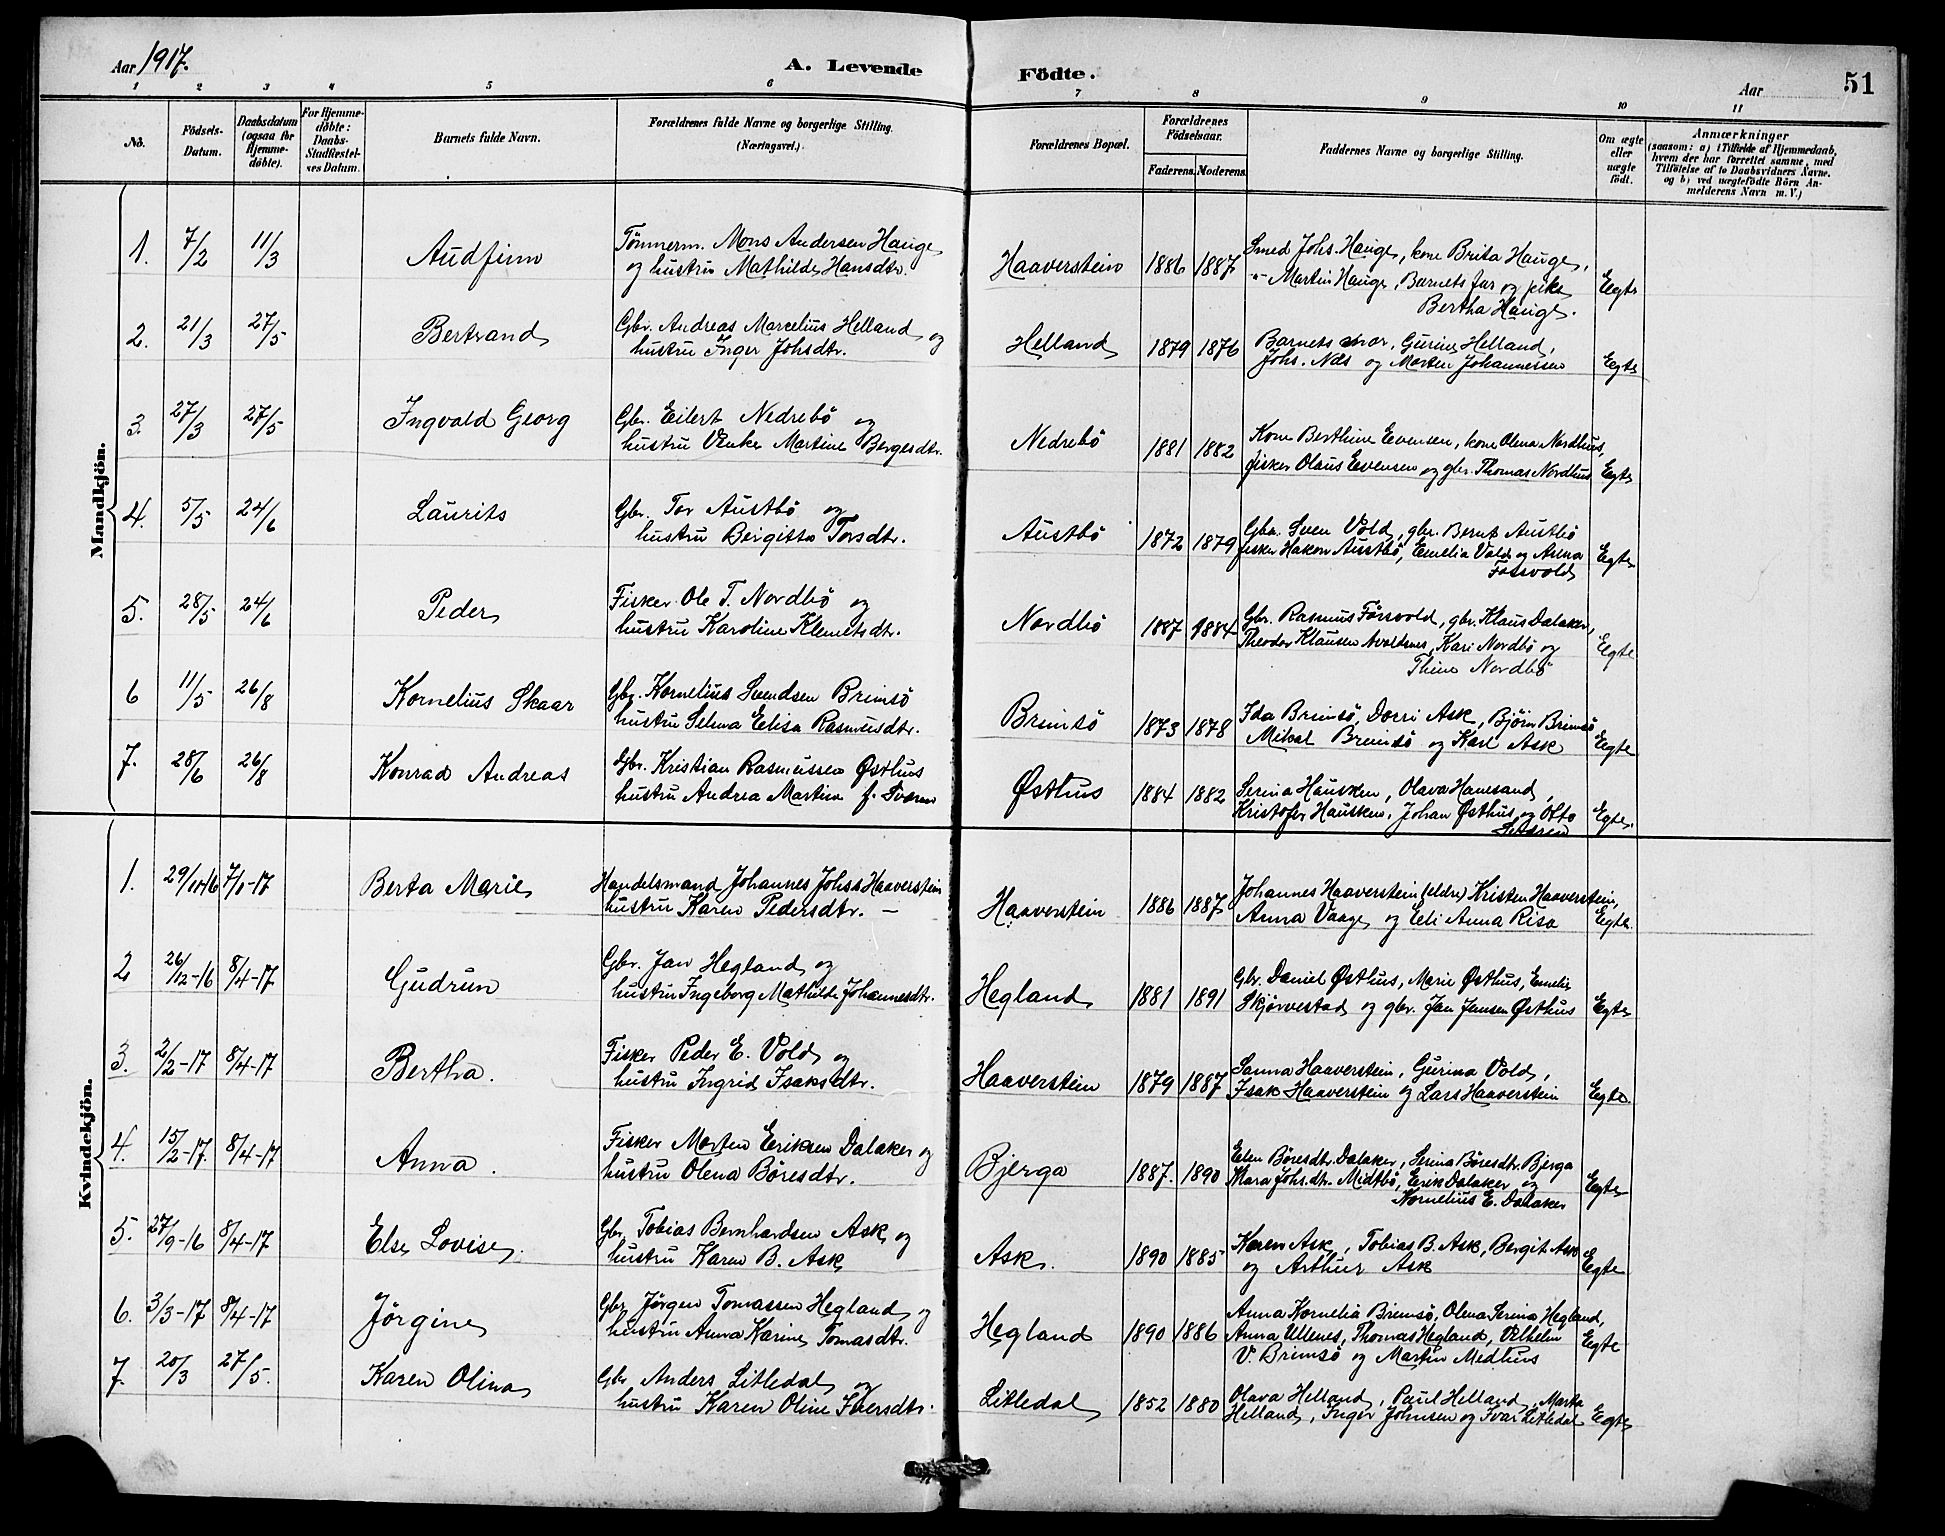 Aar 1917.
A. Levende Födte.
Aar
51
1 2 3 4 5 6 7 8 9 10 11
No.
Födsels-Datum.
Daabsdatum (ogsaa for Hjemme-döbte).
For Hjemme-döbte: Daabs-Stadfæstel-ses Datum.
Barnets fulde Navn.
Forældrenes fulde Navne og borgerlige Stilling. (Næringsvei.)
Forældrenes Bopæl.
Forældrenes Födselsaar.
Faderens. Moderens.
Faddernes Navne og borgerlige Stilling.
Om ægte eller uægte födt.
Anmærkninger (saasom: a) i Tilfælde af Hjemmedaab, hvem der har forrettet samme, med Tilföielse af to Daabsvidners Navne. og b) ved uægtefödte Börn Anmelderens Navn m. V.)
Mandkjön.
1. 7/2 11/3 Audfinn Tömmerm. Mons Andersen Hauge
og hustru Mathilde Hansdtr. Haaverstein 1886 1887 Smed Johs. Hauge, kone Brita Hauge,
" Martin Hauge, Barnets far og pike
Bertha Hauge. Egte
2. 21/3 27/5 Bertrand Gbr. Andreas Marcelius Helland og
hustru Inger Johsdtr. Helland 1879 1876 Barnets mor, Gurine Helland,
Johs. Næs og Morten Johannessen Egte
3. 27/3 27/5 Ingvald Georg Gbr. Eilert Nedrebö og
hustru Venke Martine Bergesdtr. Nedrebö 1881 1882 Kone Berthine Evensen, kone Olena Nordhus,
fisker Olaus Evensen og gbr. Thomas Nordhus Egte
4. 5/5 24/6 Laurits Gbr. Tor Austbö og
hustru Birgitte Torsdtr. Austbö 1872 1879 Gbr. Sven Vold, gbr. Bernt Austbö
fisker Hakon Austbö, Emelia Vold og Anna
Fosvold Egte
5. 28/5 24/6 Peder Fisker Ole T. Nordbö og
hustru Karoline Klemetsdtr. Nordbö 1887 1884 Gbr. Rasmus Fösvold, gbr. Klaus Dalaker,
Theodor Klausen Avaldsnes, Kari Nordbö og
Thine Nordbö Egte
6 11/5 26/8 Kornelius Skaar Gbr. Kornelius Svendsen Brimsö
hustru Selma Elisa Rasmusdtr. Brimsö 1873 1878 Ida Brimsö, Dorri Ask, Björn Brimsö
Mikal Brimsö og Karl Ask Egte
7. 28/6 26/8 Konrad Andreas Gbr. Kristian Rasmussen Østhus
hustru Andrea Martine f. Østhus 1884 1882 Serina Hausken, Olava Hanesand,
Kristofer Hausken, Johan Østhus og Otto Egte.
Kvindekjön.
1. 29/10-16 7/1-17 Berta Marie Handelsmand Johannes Johss Haaverstein
hustru Karen Pedersdtr. — Haaverstein 1886 1887 Johannes Haaverstein (eldre) Kristen Haaverstein,
Anna Vaage og Eli Anna Risa Egte.
2 26/12-16 8/4-17 Gudrun Gbr. Jan Hegland og
hustru Ingeborg Mathilde Johannesdtr. Hegland 1881 1891 Gbr. Daniel Østhus, Marie Østhus, Emelie
Skjørvestad og gbr. Jan Jansen Østhus Egte
3. 2/2-17 8/4-17 Bertha. Fisker Peder E. Vold og
hustru Ingrid Isaksdtr. Haaverstein 1879 1887 Sanna Haaverstein, Gurina Vold,
Isak Haaverstein og Lars Haaverstein Egte
4. 15/2-17. 8/4-17 Anna. Fisker Morten Eriksen Dalaker og
hustru Olena Böresdtr. Bjerga 1887. 1890 Elen Böresdtr. Dalaker, Serina Böresdtr. Bjerga
Mara Johs.dtr. Midtbö, Erik Dalaker og
Kornelius E. Dalaker Egte
5. 27/9-16 8/4-17 Else Lovise. Gbr. Tobias Bernhardsen Ask og
hustru Karen B. Ask Ask. 1890 1885 Karen Ask, Tobias B. Ask, Bergit Ask
og Arthur Ask Egte
6. 3/3-17 8/4-17 Jörgine Gbr. Jörgen Tomassen Hegland og
hustru Anna Karine Tomasdtr. Hegland 1890 1886 Anna Kornelia Brimsö, Olena Serina Hegland,
Anna Ullenes, Thomas Hegland, Vilhelm
V. Brimsö og Martin Medhus Egte
7. 20/3 27/5. Karen Olina Gbr. Anders Litledal og
hustru Karen Oline Iversdtr. Litledal 1852 1880 Olava Helland, Paul Helland, Marta
Helland, Inger Johnsen og Ivar Litledal Egte